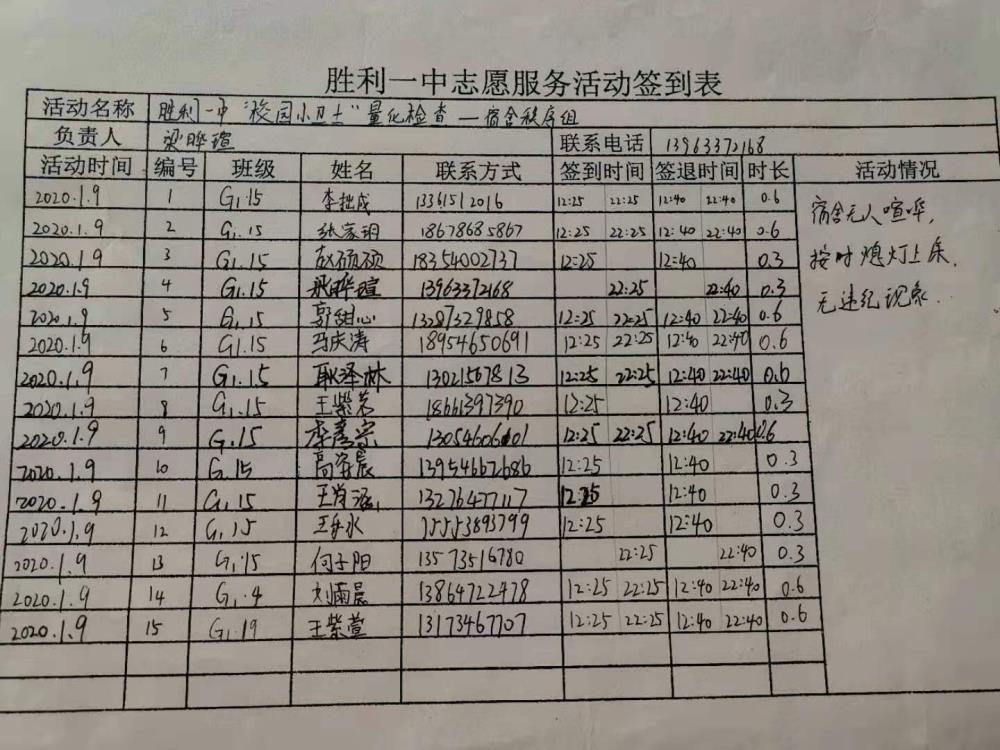 胜利一中志愿服务活动签到表
活动名称 胜利一中"校园小卫士"量化检查—宿舍秩序组
负责人 梁晔瑄 联系电话 13963372168
活动时间 编号 班级 姓名 联系方式 签到时间 签退时间 时长 活动情况
2020.1.9 1 G1.15 李拙成 13361512016 12:25 22:25 12:40 22:40 0.6
2020.1.9 2 G1.15 张家玥 18678685867 12:25 22:25 12:40 22:40 0.6
2020.1.9 3 G1.15 赵硕硕 18354002737 12:25 12:40 0.3
2020.1.9 4 G1.15 梁晔瑄 13963372168 22:25 22:40 0.3
2020.1.9 5 G1.15 郭甜心 13287329858 12:25 22:25 12:40 22:40 0.6
2020.1.9 6 G1.15 马庆涛 18954650691 12:25 22:25 12:40 22:40 0.6
2020.1.9 7 G1.15 耿泽林 13021567813 12:25 22:25 12:40 22:40 0.6
2020.1.9 8 G1.15 王紫茗 18661397390 12:25 12:40 0.3
2020.1.9 9 G.15 12:25 22:25 12:40 22:40 0.6
2020.1.9 10 G.15 13954667686 12:25 12:40 0.3
2020.1.9 11 G1.15 王肖涵 13276477117 12:25 12:40 0.3
2020.1.9 12 G1.15 王乐水 15553893799 12:25 12:40 0.3
2020.1.9 13 G1.15 何子阳 13573516780 22:25 22:40 0.3
2020.1.9 14 G1.4 13864722478 12:25 22:25 12:40 22:40 0.6
2020.1.9 15 G1.19 王紫萱 13173467707 12:25 22:25 12:40 22:40 0.6
宿舍无人喧哗,
按时熄灯上床,
无违纪现象.